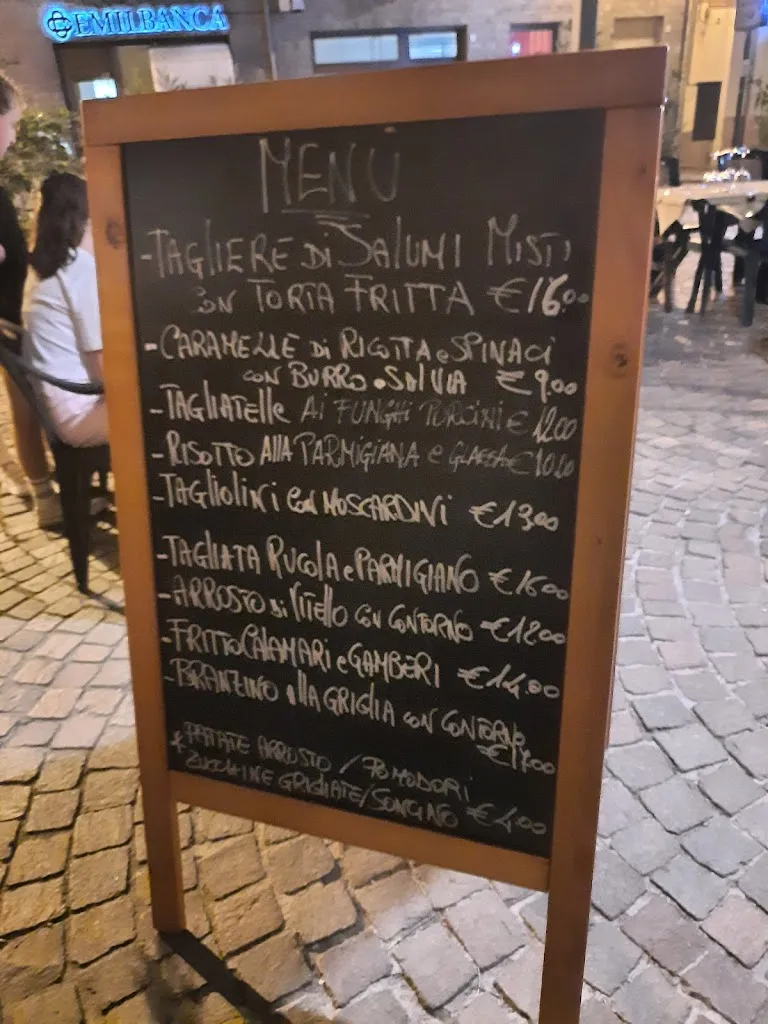 EMILBANCA
MENÙ
-TAGLIERE Di SALUMI MISTI
CON TORTA FRITTA €16.00
-CARAMELLE di RICOTTA e SPINACI
CON BURRO e SALVIA €9.00
-TAGLIATELLE Ai FUNGHI PORCINI € 12.00
-RISOTTO AllA PARMIGIANA e GLASSA €10.00
-TAGLIOLINI CON MOSCARDINI €13.00
-TAGLIATA RUCOLA e PARMIGIANO €16.00
-ARROSTO di VITELLO CON CONTORNO €12.00
-FRITTO CALAMARI e GAMBERI €14.00
-BRANZINO AllA GRIGLIA CON CONTORNO
€17.00
* PATATE ARROSTO / POMODORI
ZUCCHINE GRIGLIATE / SONGINO €4.00